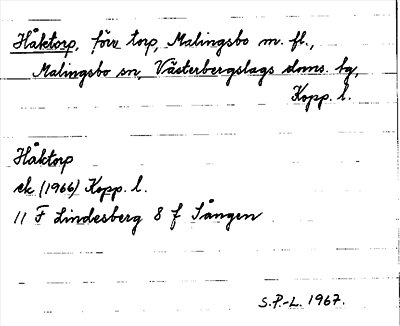 Håktorp, förr torp, Malingsbo m. fl.,
Malingsbo sn, Västerbergslags doms. hg,
Kopp. l.
Håktorp
ek (1966) Kopp. l.
11 F Lindesberg 8 f Sången
S.P.-L. 1967.